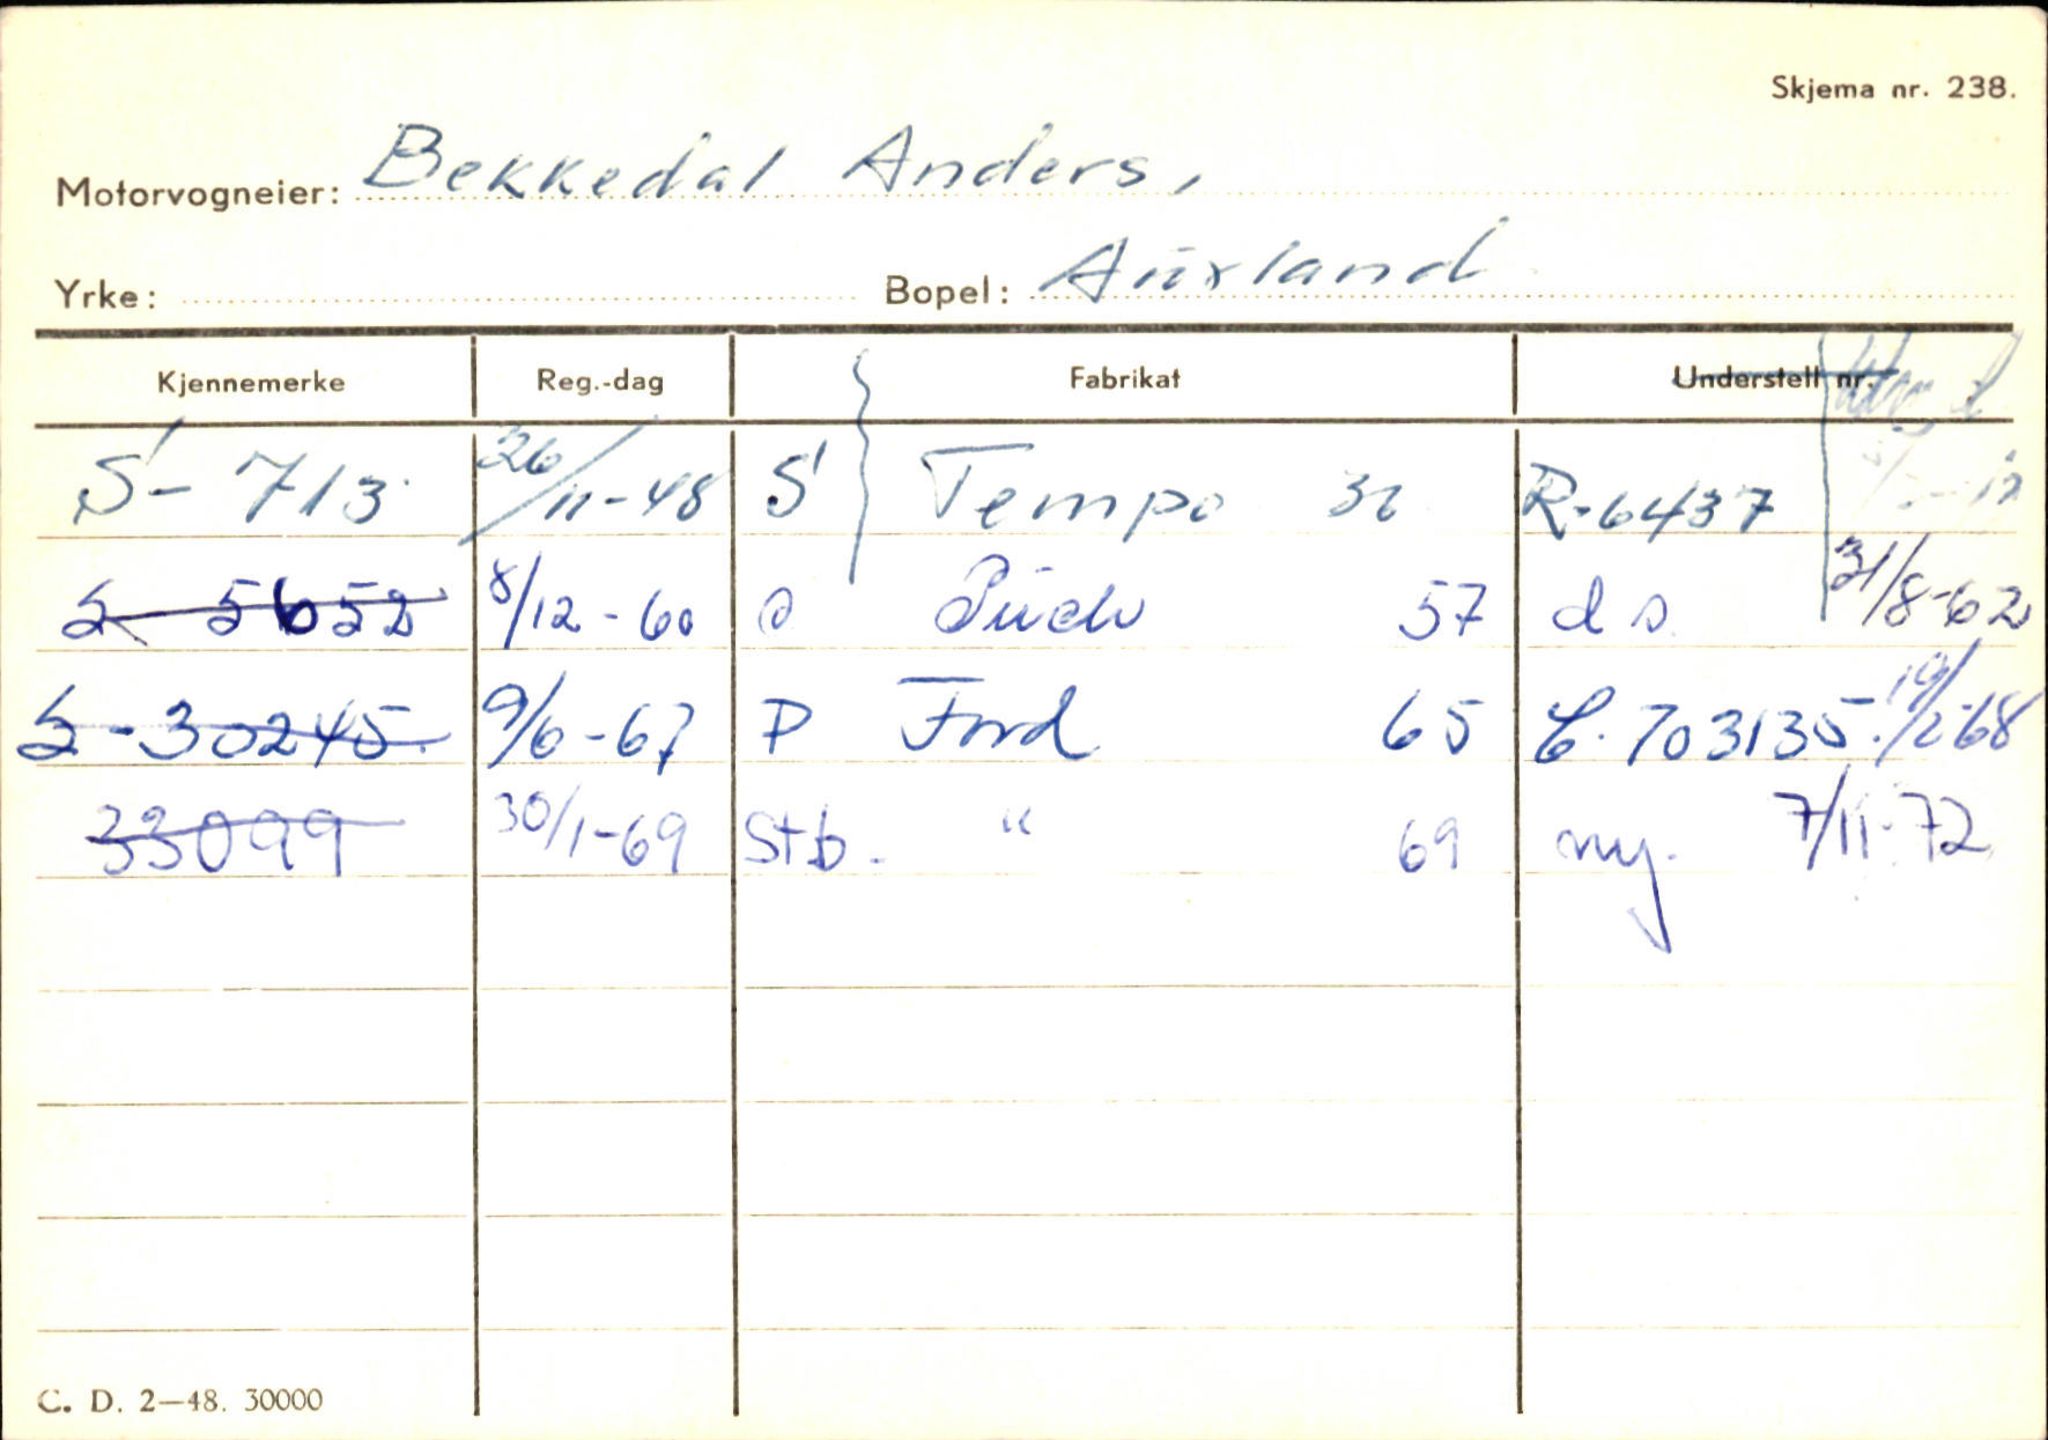 Skjema nr. 238.
Motorvogneier: Bekkedal Anders,
Yrke: Bopel: Aurland
Kjennemerke Reg.-dag Fabrikat Understell nr.
S- 713 26/11-48 S Tempo R-6437
S 5652 8/12-60 o Puch 57 ds. 31/8-62
S-30245 9/6-67 P Ford 65 C.703135. 19/2-68
33099 30/1-69 Stb. " 69 ny. 7/11-72
C. D. 2—48. 30000